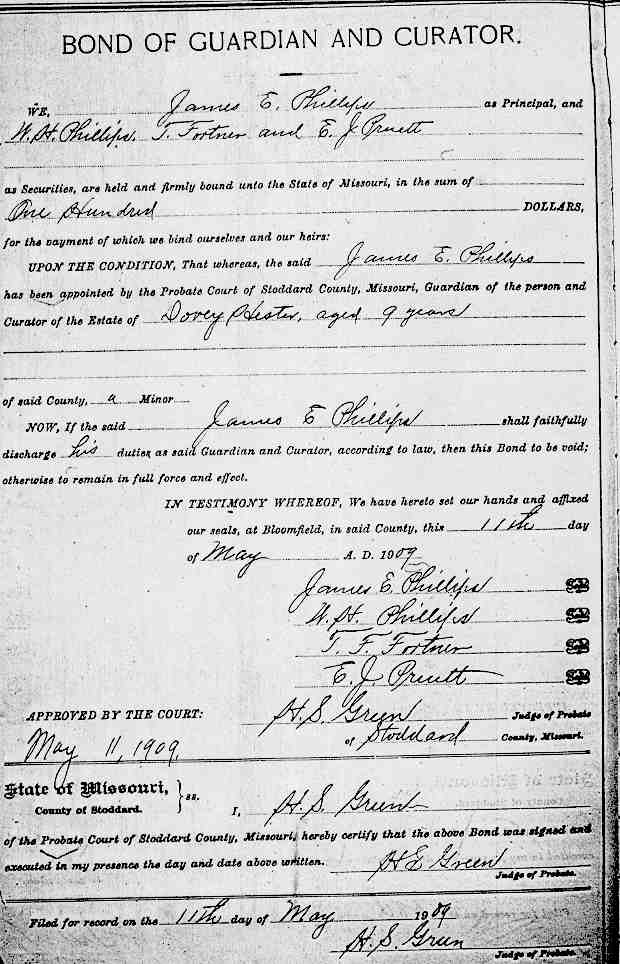 BOND OF GUARDIAN AND CURATOR.
WE, James E. Phillips as Principal, and
W. H. Phillips, T. Fortner and E. J. Pruett
as Securities, are held and firmly bound unto the State of Missouri, in the sum of
One Hundred DOLLARS,
for the payment of which we bind ourselves and our heirs:
UPON THE CONDITION, That whereas, the said James E. Phillips
has been appointed by the Probate Court of Stoddard County, Missouri, Guardian of the person and
Curator of the Estate of Dovey Hester, aged 9 years
of said County, a Minor
NOW, If the said James E Phillips shall faithfully
discharge his duties as said Guardian and Curator, according to law, then this Bond to be void;
otherwise to remain in full force and effect.
IN TESTIMONY WHEREOF, We have hereto set our hands and affixed
our seals, at Bloomfield, in said County, this 11th day
of May A. D. 1909
James E. Phillips
W. H. Phillips
T. F. Fortner
E. J. Pruett
APPROVED BY THE COURT: H. S. Green Judge of Probate
May 11, 1909, of Stoddard County, Missouri.
State of Missouri, } ss.
County of Stoddard. I, H. S. Green
of the Probate Court of Stoddard County, Missouri, hereby certify that the above Bond was signed and
executed in my presence the day and date above written. H S Green
Judge of Probate.
Filed for record on the 11th day of May 1909
H. S. Green
Judge of Probate.